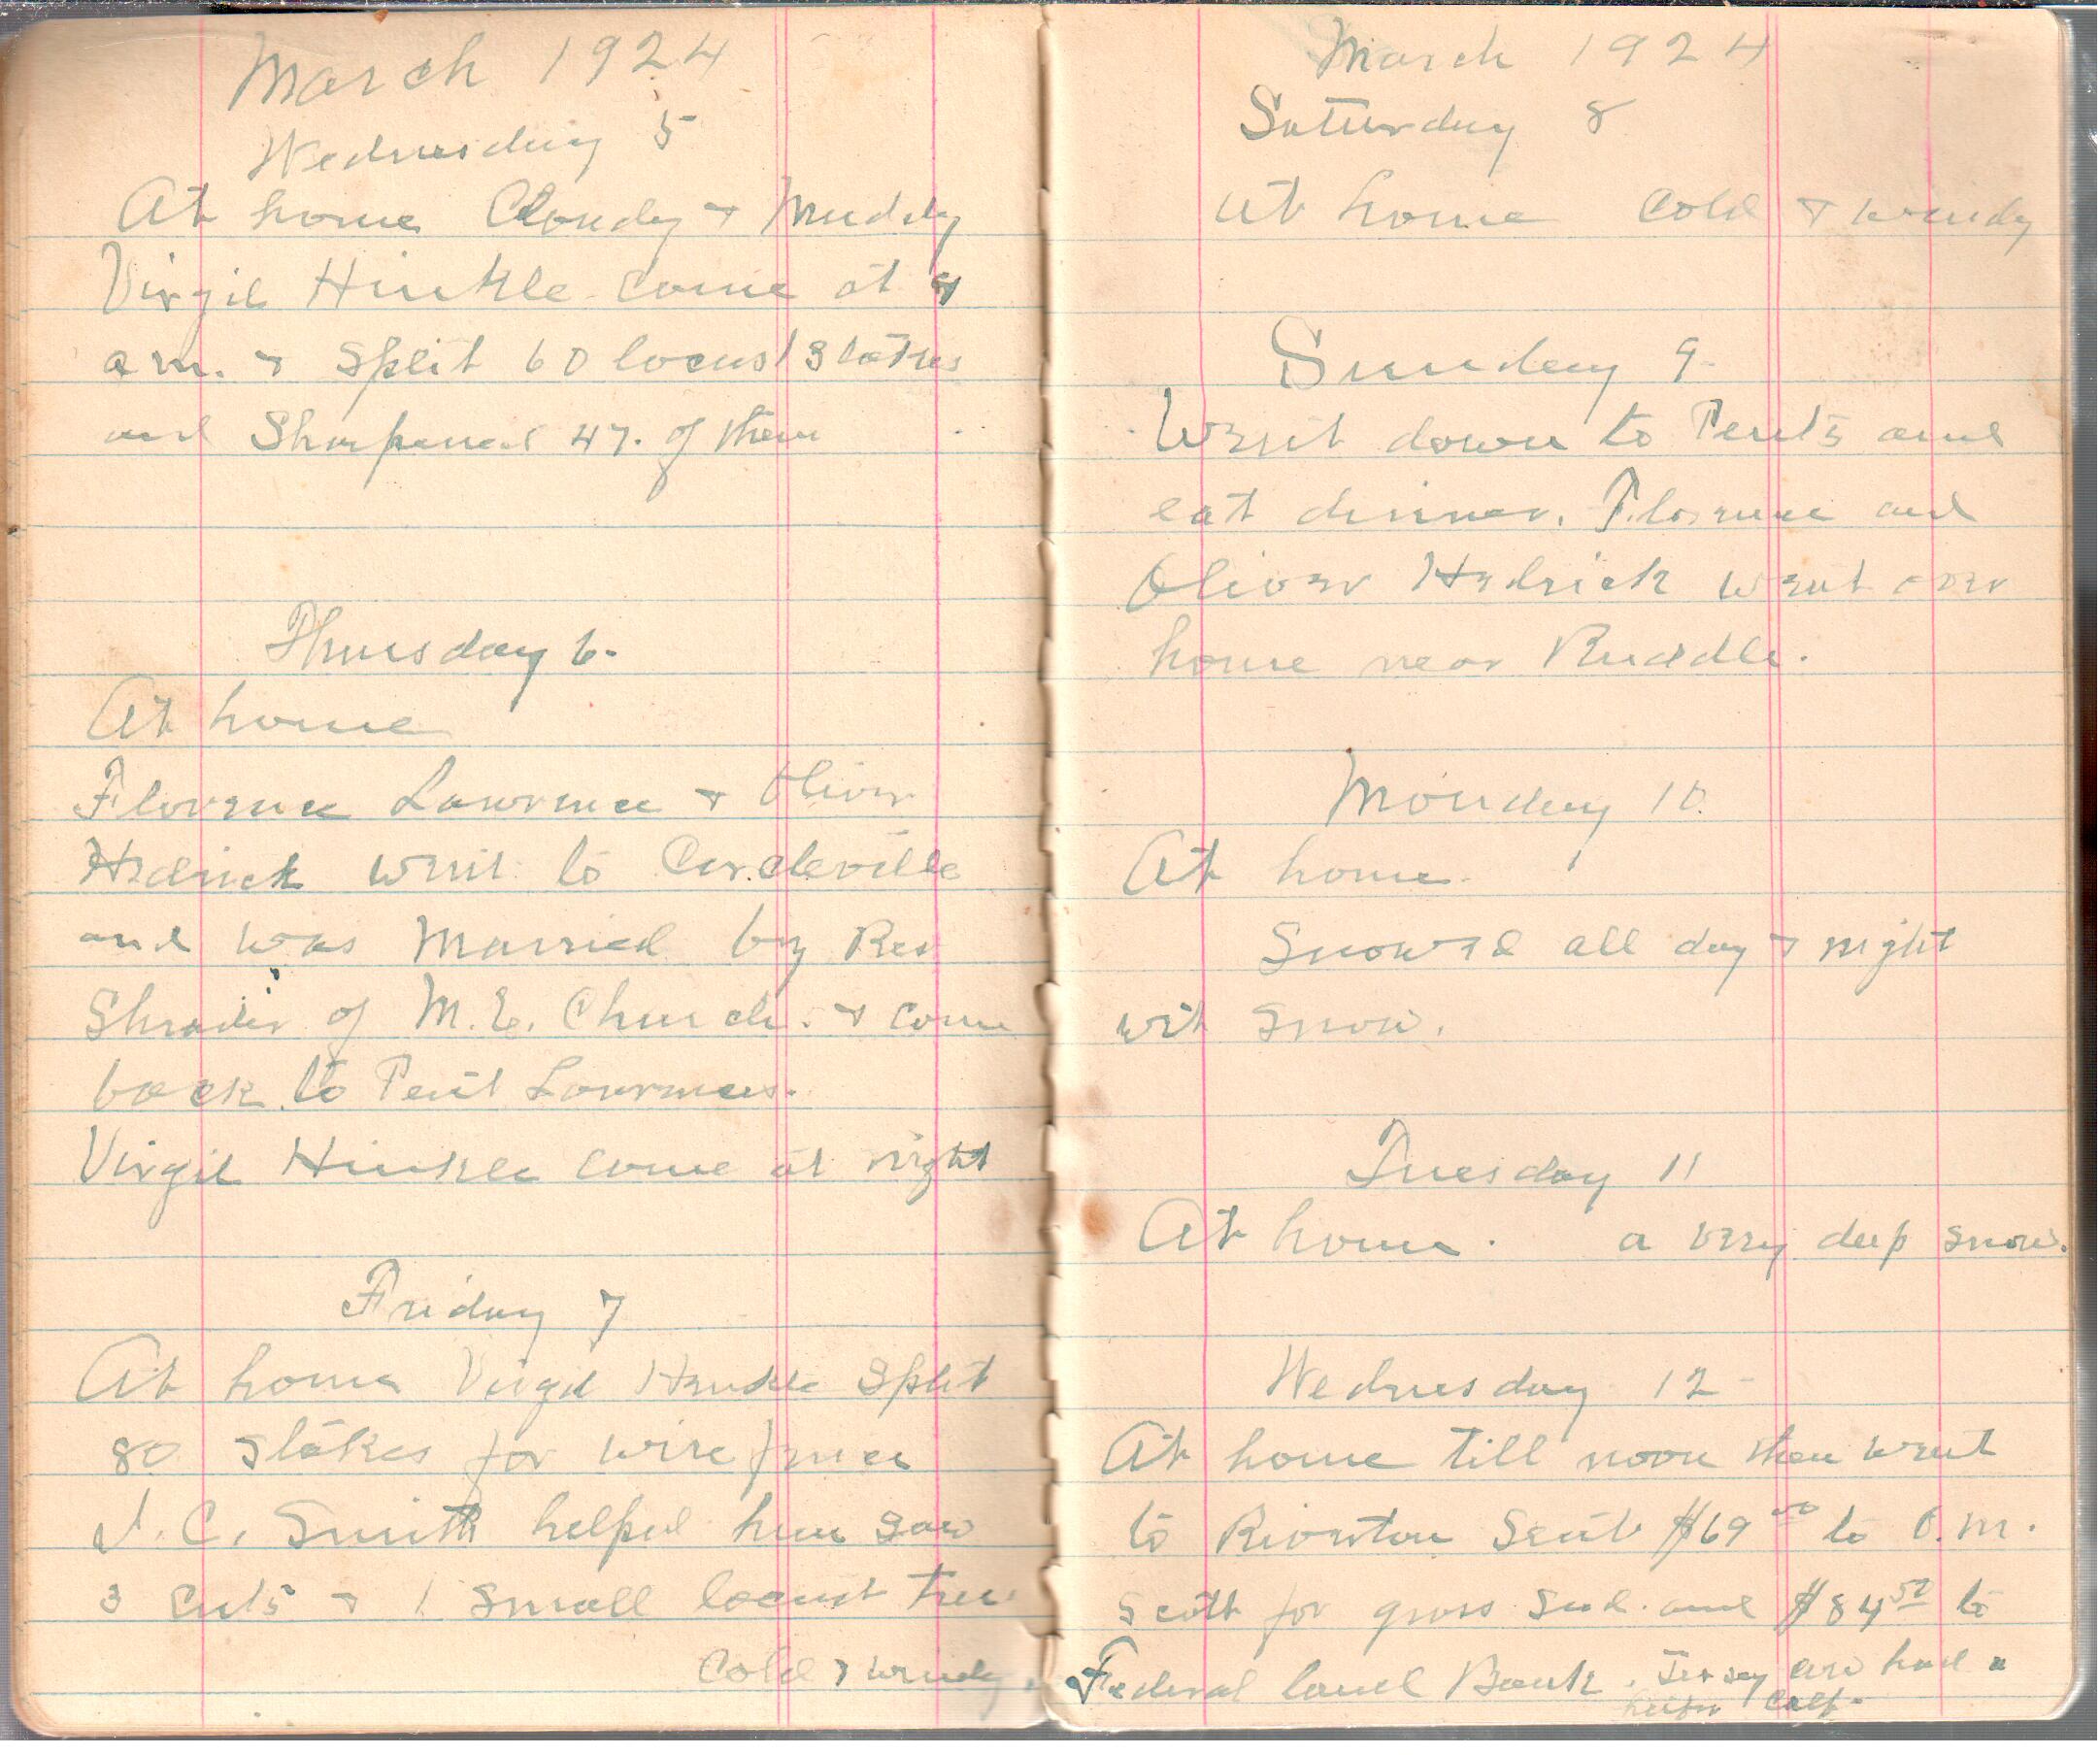 March 1924
Wednesday 5
At home Cloudy + Muddy
Virgil Hinkle come at 9
a m. + Split 60 locust Stakes
and Sharpened 47. of them
Thursday 6.
At home
Florence Lawrence + Oliver
Hedrick went to Circleville
and was Married by Rev
Shrader of M.E. Church. + come
back to Pent Lawrences.
Virgil Hinkle come at night
Friday 7
At home Virgil Hinkle Split
80 Stakes for wire fence
J. C. Smith helped him saw
3 cuts + 1 small locust tree.
Cold + windy.
March 1924
Saturday 8
at home Cold + windy
Sunday 9.
Went down to Pents and
eat dinner. Florence and
Oliver Hedrick went over
home near Ruddle.
Monday 10.
At home.
Snowed all day + night
wet snow.
Tuesday 11
At home. a very deep snow.
Wednesday 12
At home till noon then went
to Riverton Sent $69 00 to O.M.
Scott for grass Seed. and $84 50 to
Federal land Bank. Jersey had a
heifer Calf.